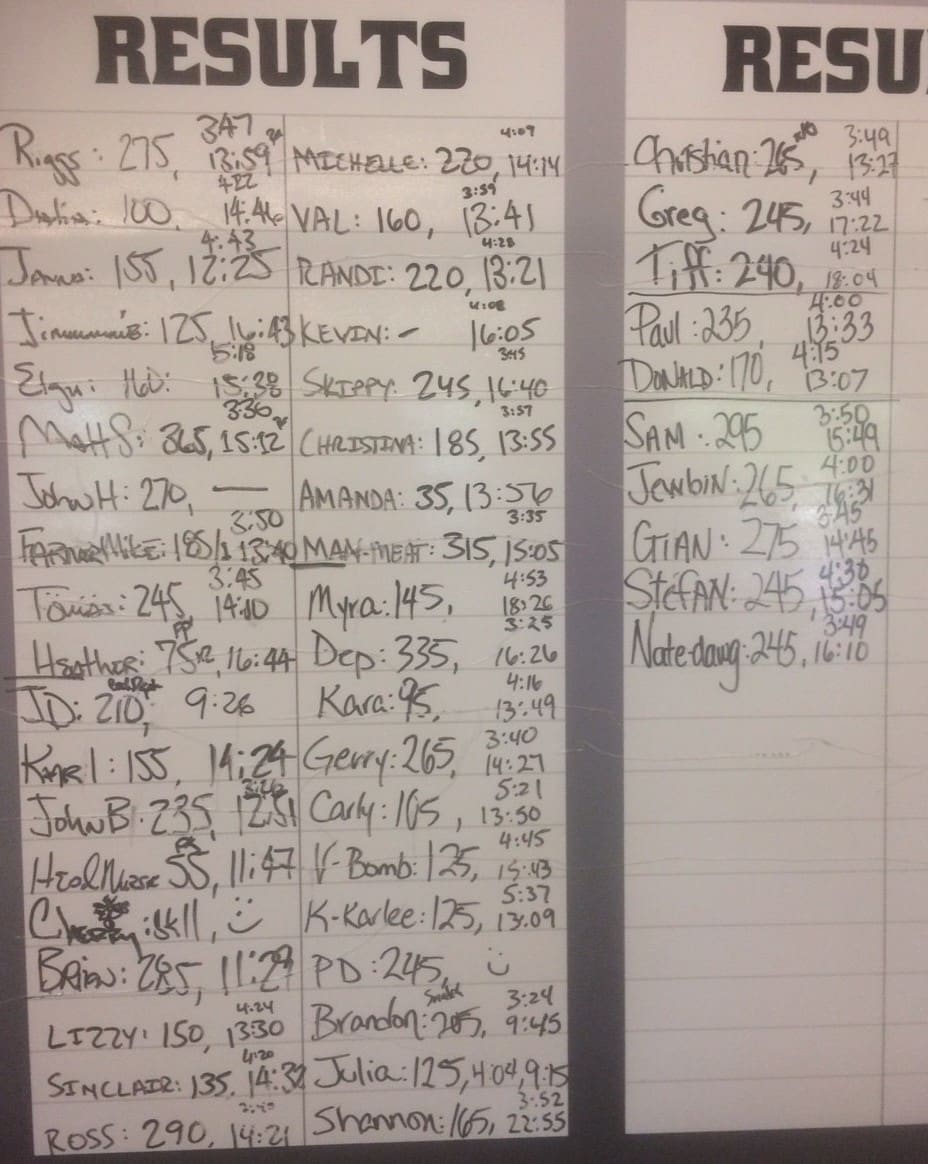 RESULTS
Riggs: 275, 3:47 13:59
Dustin: 100, 4:22 14:46
James: 155, 4:43 12:25
125, 16:43
160: 15:18 15:38
Matt S: 365, 3:36 15:12
John H: 270, —
Farmer Mike: 185, 3:50 13:40
245, 3:45 14:10
Heather: 75, 16:44
JD: 210, 9:26
Karl: 155, 14:24
John B: 235, 12:51
55, 11:47
Cherry: skll, :)
Brian: 285, 11:29
LIZZY: 150, 4:24 13:30
SINCLAIR: 135, 4:20 14:32
ROSS: 290, 14:21
MICHELLE: 220, 4:09 14:14
VAL: 160, 3:59 13:41
RANDI: 220, 4:28 13:21
KEVIN: - 4:08 16:05
SKIPPY: 245, 3:45 16:40
CHRISTINA: 185, 3:57 13:55
AMANDA: 35, 13:56
MAN-MEAT: 315, 3:35 15:05
Myra: 145, 4:53 18:26
Dep: 335, 3:25 16:26
Kara: 95, 4:16 13:49
Gerry: 265, 3:40 14:27
Carly: 105, 5:21 13:50
V-Bomb: 125, 4:45 15:43
K-Karlee: 125, 5:37 13:09
PD: 245, :)
Brandon: 205, 3:24 9:45
Julia: 125, 4:04, 9:15
Shannon: 165, 3:52 22:55
RESU
Christian: 265, 3:49 13:27
Greg: 245, 3:44 17:22
Tiff: 240, 4:24 18:04
Paul: 235, 4:00 13:33
DONALD: 170, 4:15 13:07
SAM: 295 3:50 15:49
Jewbin: 265, 4:00 16:31
GIAN: 275 3:45 14:45
StefAN: 245, 4:30 15:05
Nate-dawg: 245, 3:49 16:10